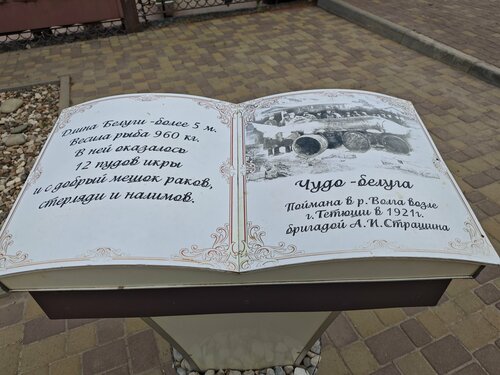 Длина Белуги - более 5 м.
Весила рыба 960 кг.
В ней оказалось
12 пудов икры
и с добрый мешок раков,
стерляди и налимов.
Чудо - белуга
Поймана в р. Волга возле
г. Тетюши в 1921г.
бригадой А.И.Страшина